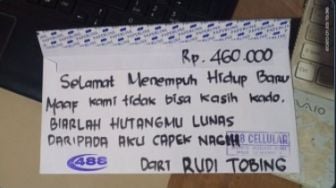 Rp. 460.000
Selamat Menempuh Hidup Baru
Maap kami tidak bisa kasih kado.
BIARLAH HUTANGMU LUNAS
DARIPADA AKU CAPEK NAGIH
88 CELLULAR
488
DARI RUDI TOBING